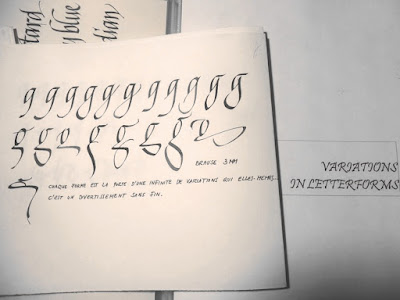 tard
y blue
dian
g g g g g g g g g g g
g g g g g g g g
BRAUSE 3 MM
g
CHAQUE FORME EST LA PORTE D'UNE INFINITE DE VARIATIONS QUI ELLES-MEMES...
C'EST UN DIVERTISSEMENT SANS FIN.
VARIATIONS
IN LETTERFORMS